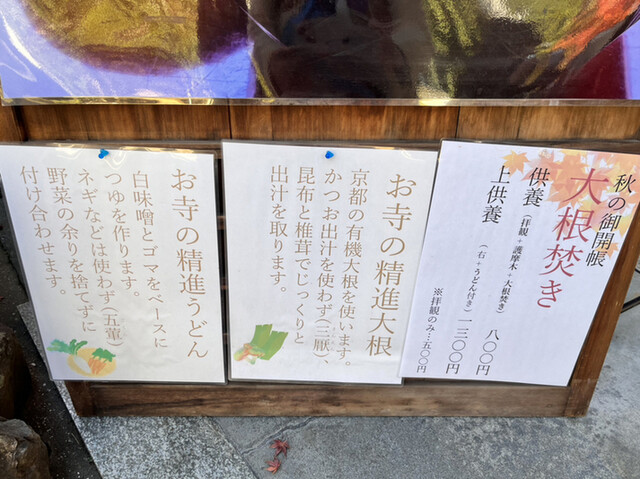 秋の御開帳
大根焚き
供養(拝観+護摩木+大根焚き) 八〇〇円
上供養(右+うどん付き)一三〇〇円
※拝観のみ…五〇〇円
お寺の精進大根
京都の有機大根を使います。
かつお出汁を使わず(三厭)、
昆布と椎茸でじっくりと
出汁を取ります。
お寺の精進うどん
白味噌とゴマをベースに
つゆを作ります。
ネギなどは使わず(五葷)
野菜の余りを捨てずに
付け合わせます。